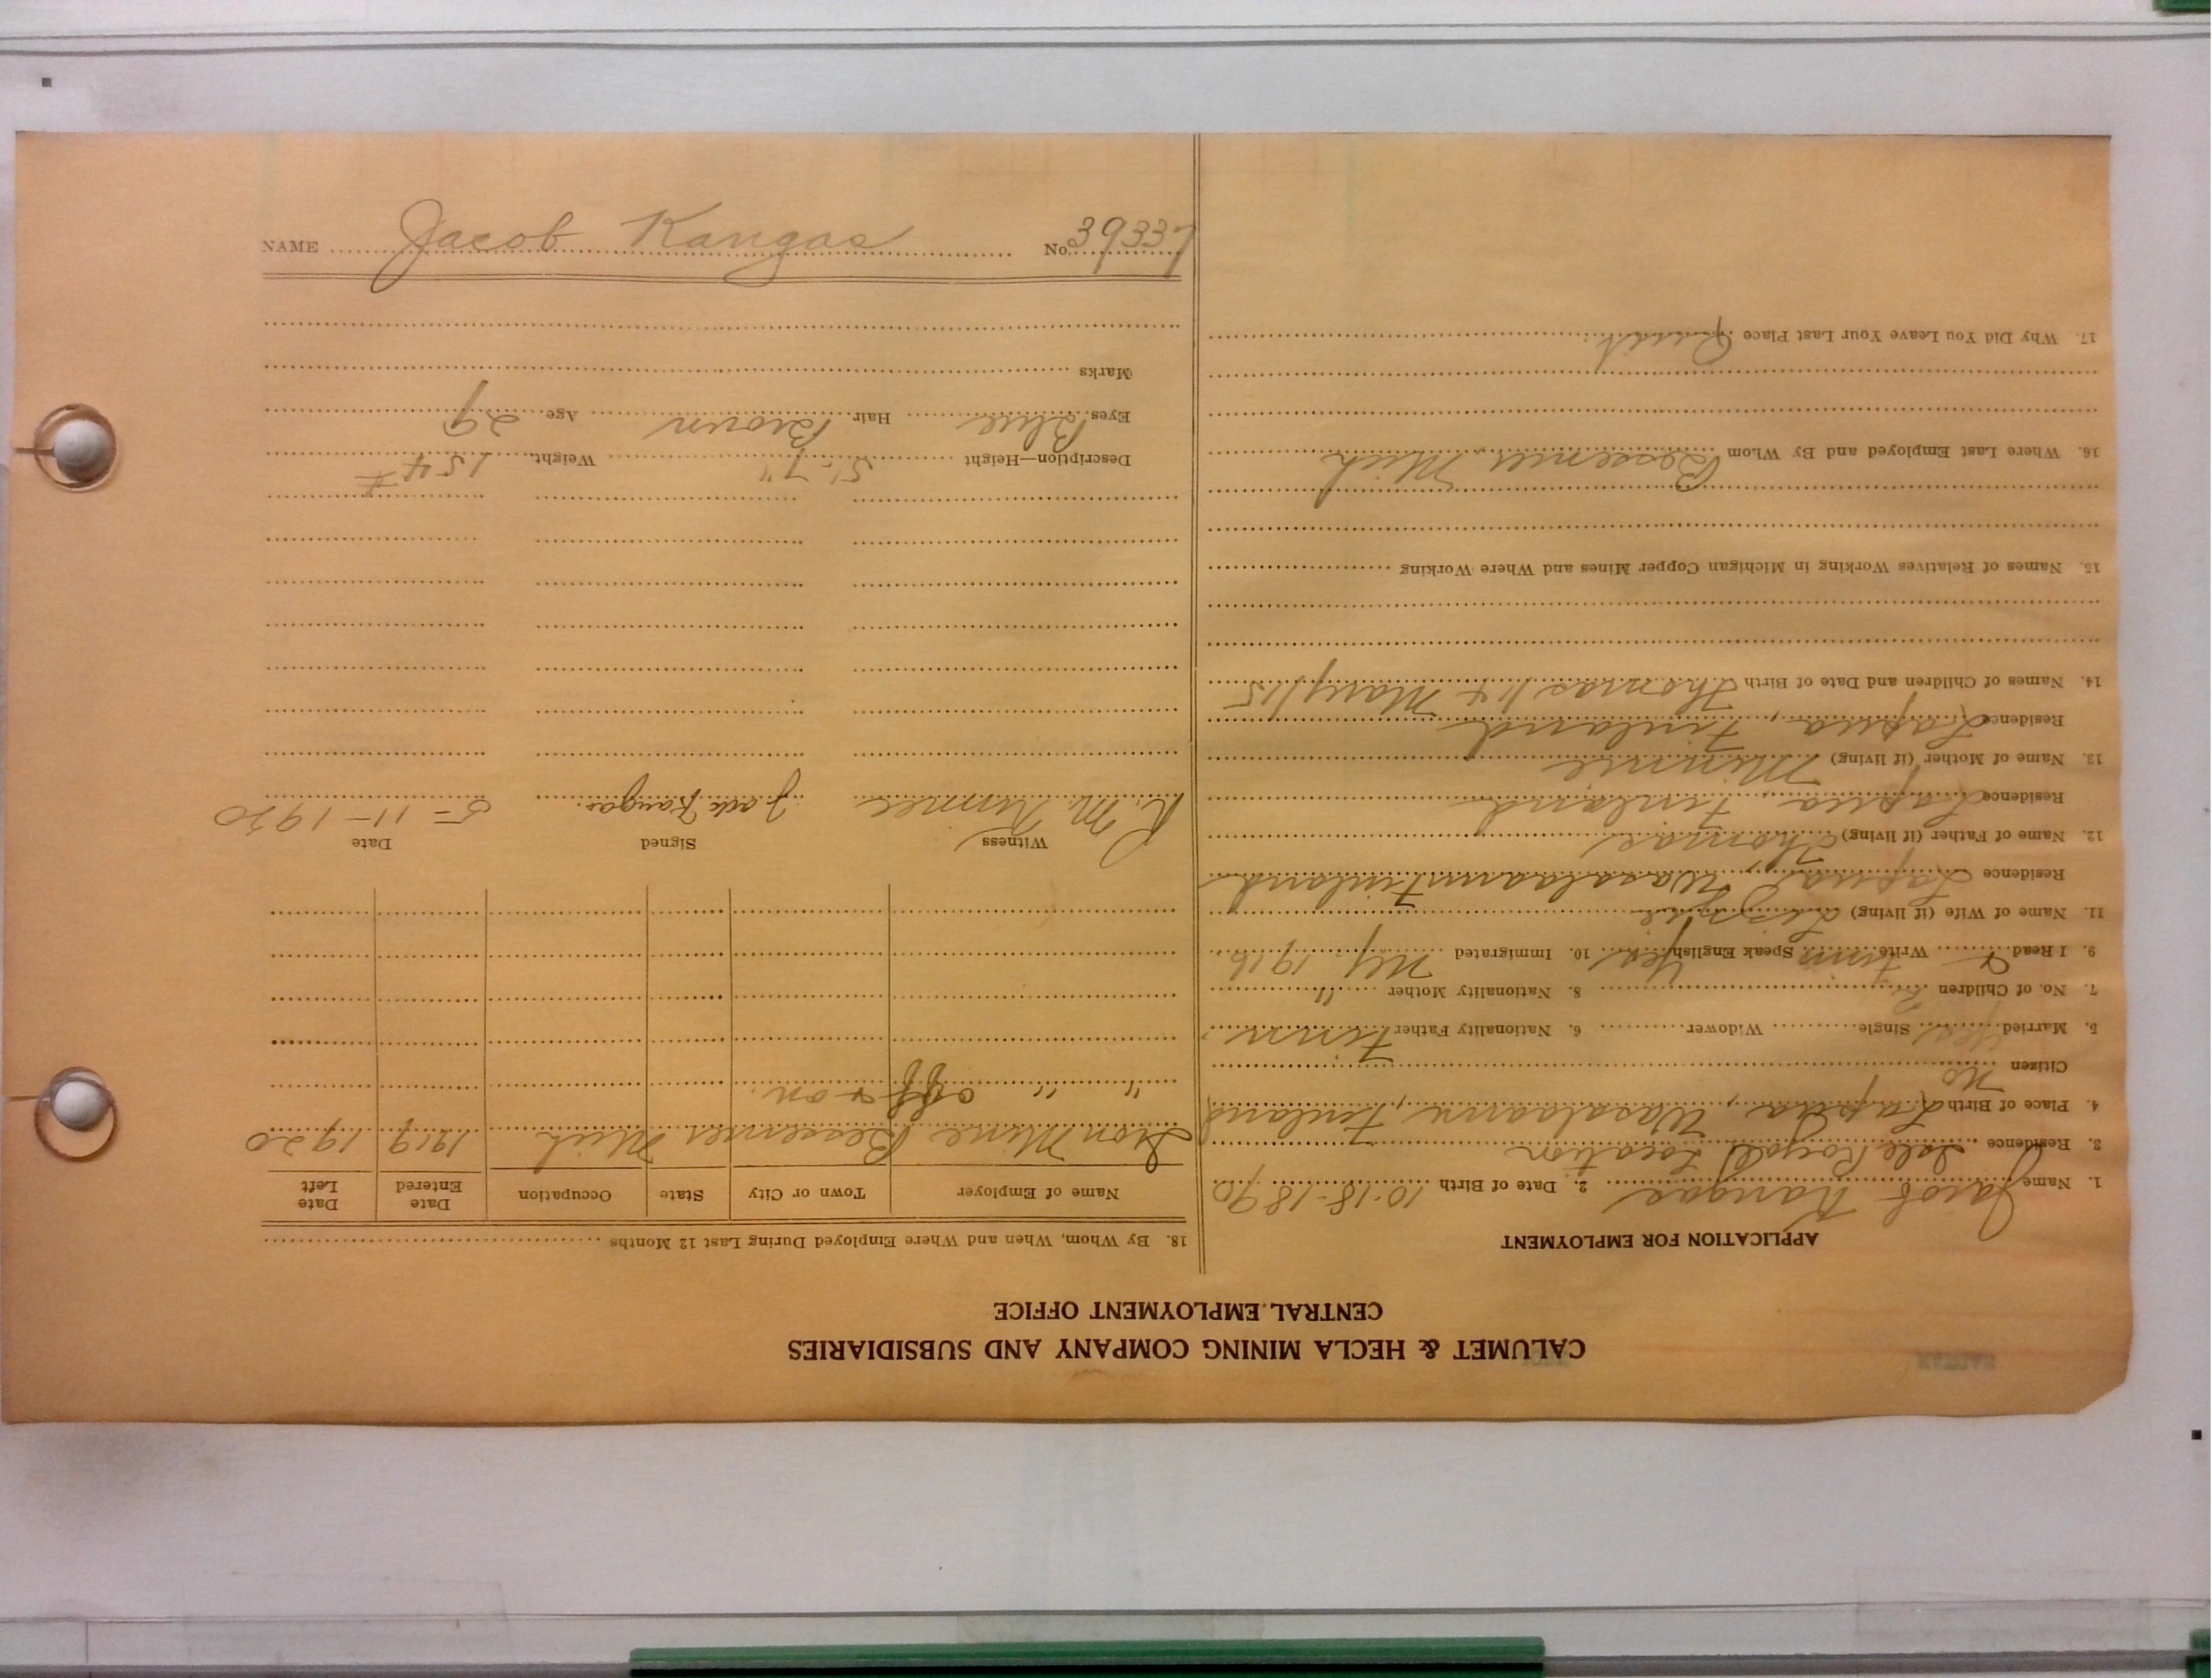 CALUMET & HECLA MINING COMPANY AND SUBSIDIARIES
CENTRAL EMPLOYMENT OFFICE
APPLICATION FOR EMPLOYMENT
1. Name Jacob Kangas 2. Date of Birth 10-18-1890
3. Residence Isle Royale Location
4. Place of Birth Lapua, Wasalaani, Finland
Citizen no
5. Married Yes Single Widower 6. Nationality Father Finn
7. No. of Children 2 8. Nationality Mother "
9. I Read & Write Finn Speak English Yes 10. Immigrated NY 1916
11. Name of Wife (if living)
Residence Lapua, Wasalaani Finland
12. Name of Father (if living) Thomas
Residence Lapua, Finland
13. Name of Mother (if living) Minnie
Residence Lapua, Finland
14. Names of Children and Date of Birth Thomas/14 Mary/15
15. Names of Relatives Working in Michigan Copper Mines and Where Working
16. Where Last Employed and By Whom Bessemer, Mich
17. Why Did You Leave Your Last Place Quit
18. By Whom, When and Where Employed During Last 12 Months
Name of Employer Town or City State Occupation Date Entered Date Left
Iron Mine Bessemer Mich 1919 1920
" " off & on
Witness Signed Date
R. M. Jack Kangas 5-11-1920
Description—Height 5'-7" Weight 154#
Eyes Blue Hair Brown Age 29
Marks
NAME Jacob Kangas No. 39337